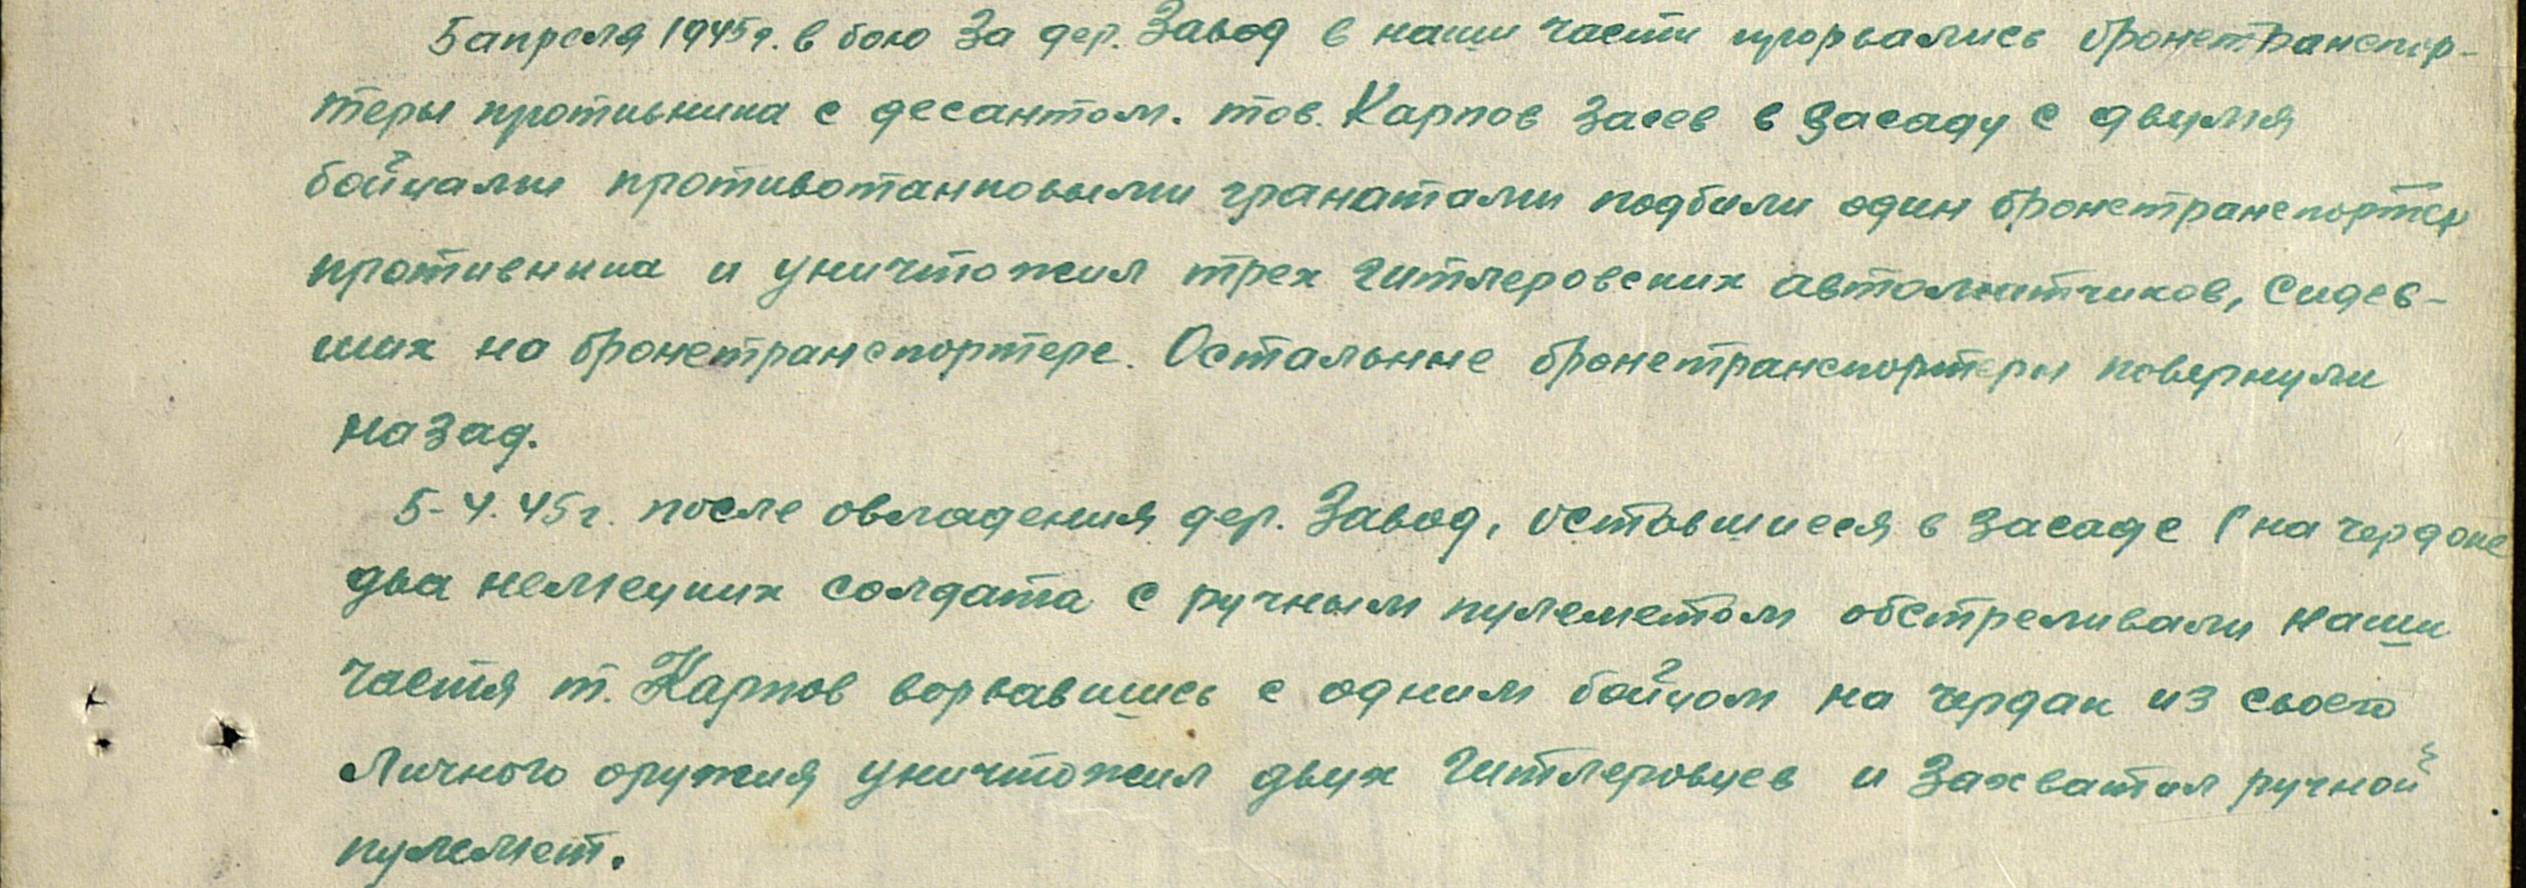 5 апреля 1945г. в бою за дер. Завод в наши части прорвались бронетранспор-
теры противника с десантом. тов. Карпов засев в засаду с двумя
бойцами противотанковыми гранатами подбили один бронетранспортер
противника и уничтожил трех гитлеровских автоматчиков, сидев-
ших на бронетранспортере. Остальные бронетранспортеры повернули
назад.
5-4.45г. после овладения дер. Завод, оставшиеся в засаде (на чердоке
два немецких солдата с ручным пулеметом обстреливали наши
частя т. Карпов ворвавшись с одним бойцом на чердак из своего
личного оружия уничтожил двух гитлеровцев и захватил ручной
пулемет.